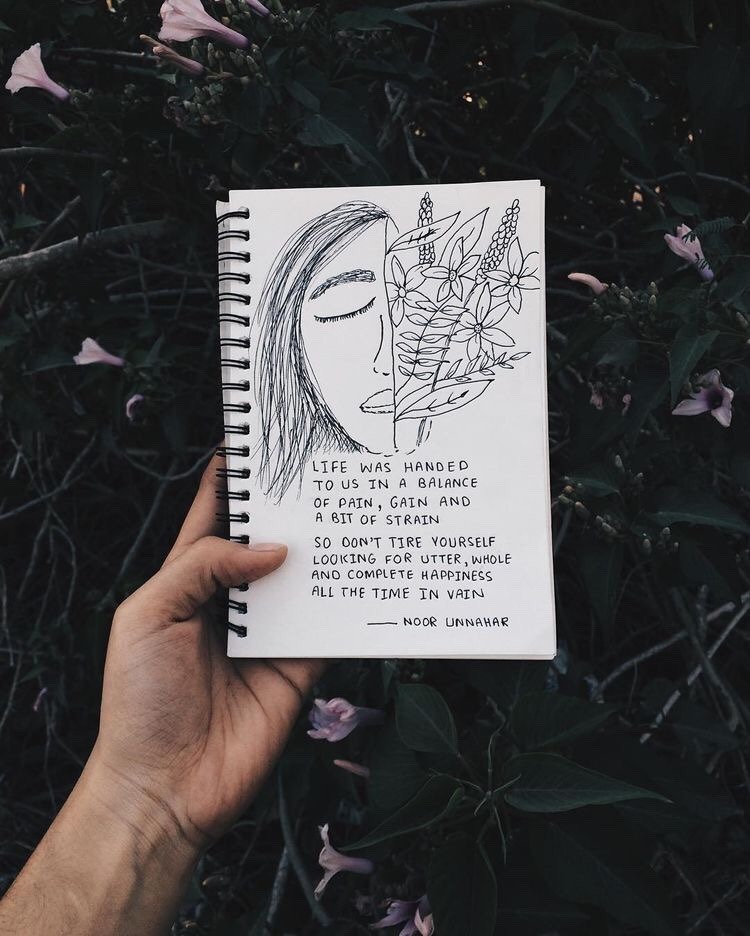 LIFE WAS HANDED
TO US IN A BALANCE
OF PAIN, GAIN AND
A BIT OF STRAIN
SO DON'T TIRE YOURSELF
LOOKING FOR UTTER, WHOLE
AND COMPLETE HAPPINESS
ALL THE TIME IN VAIN
— NOOR UNNAHAR